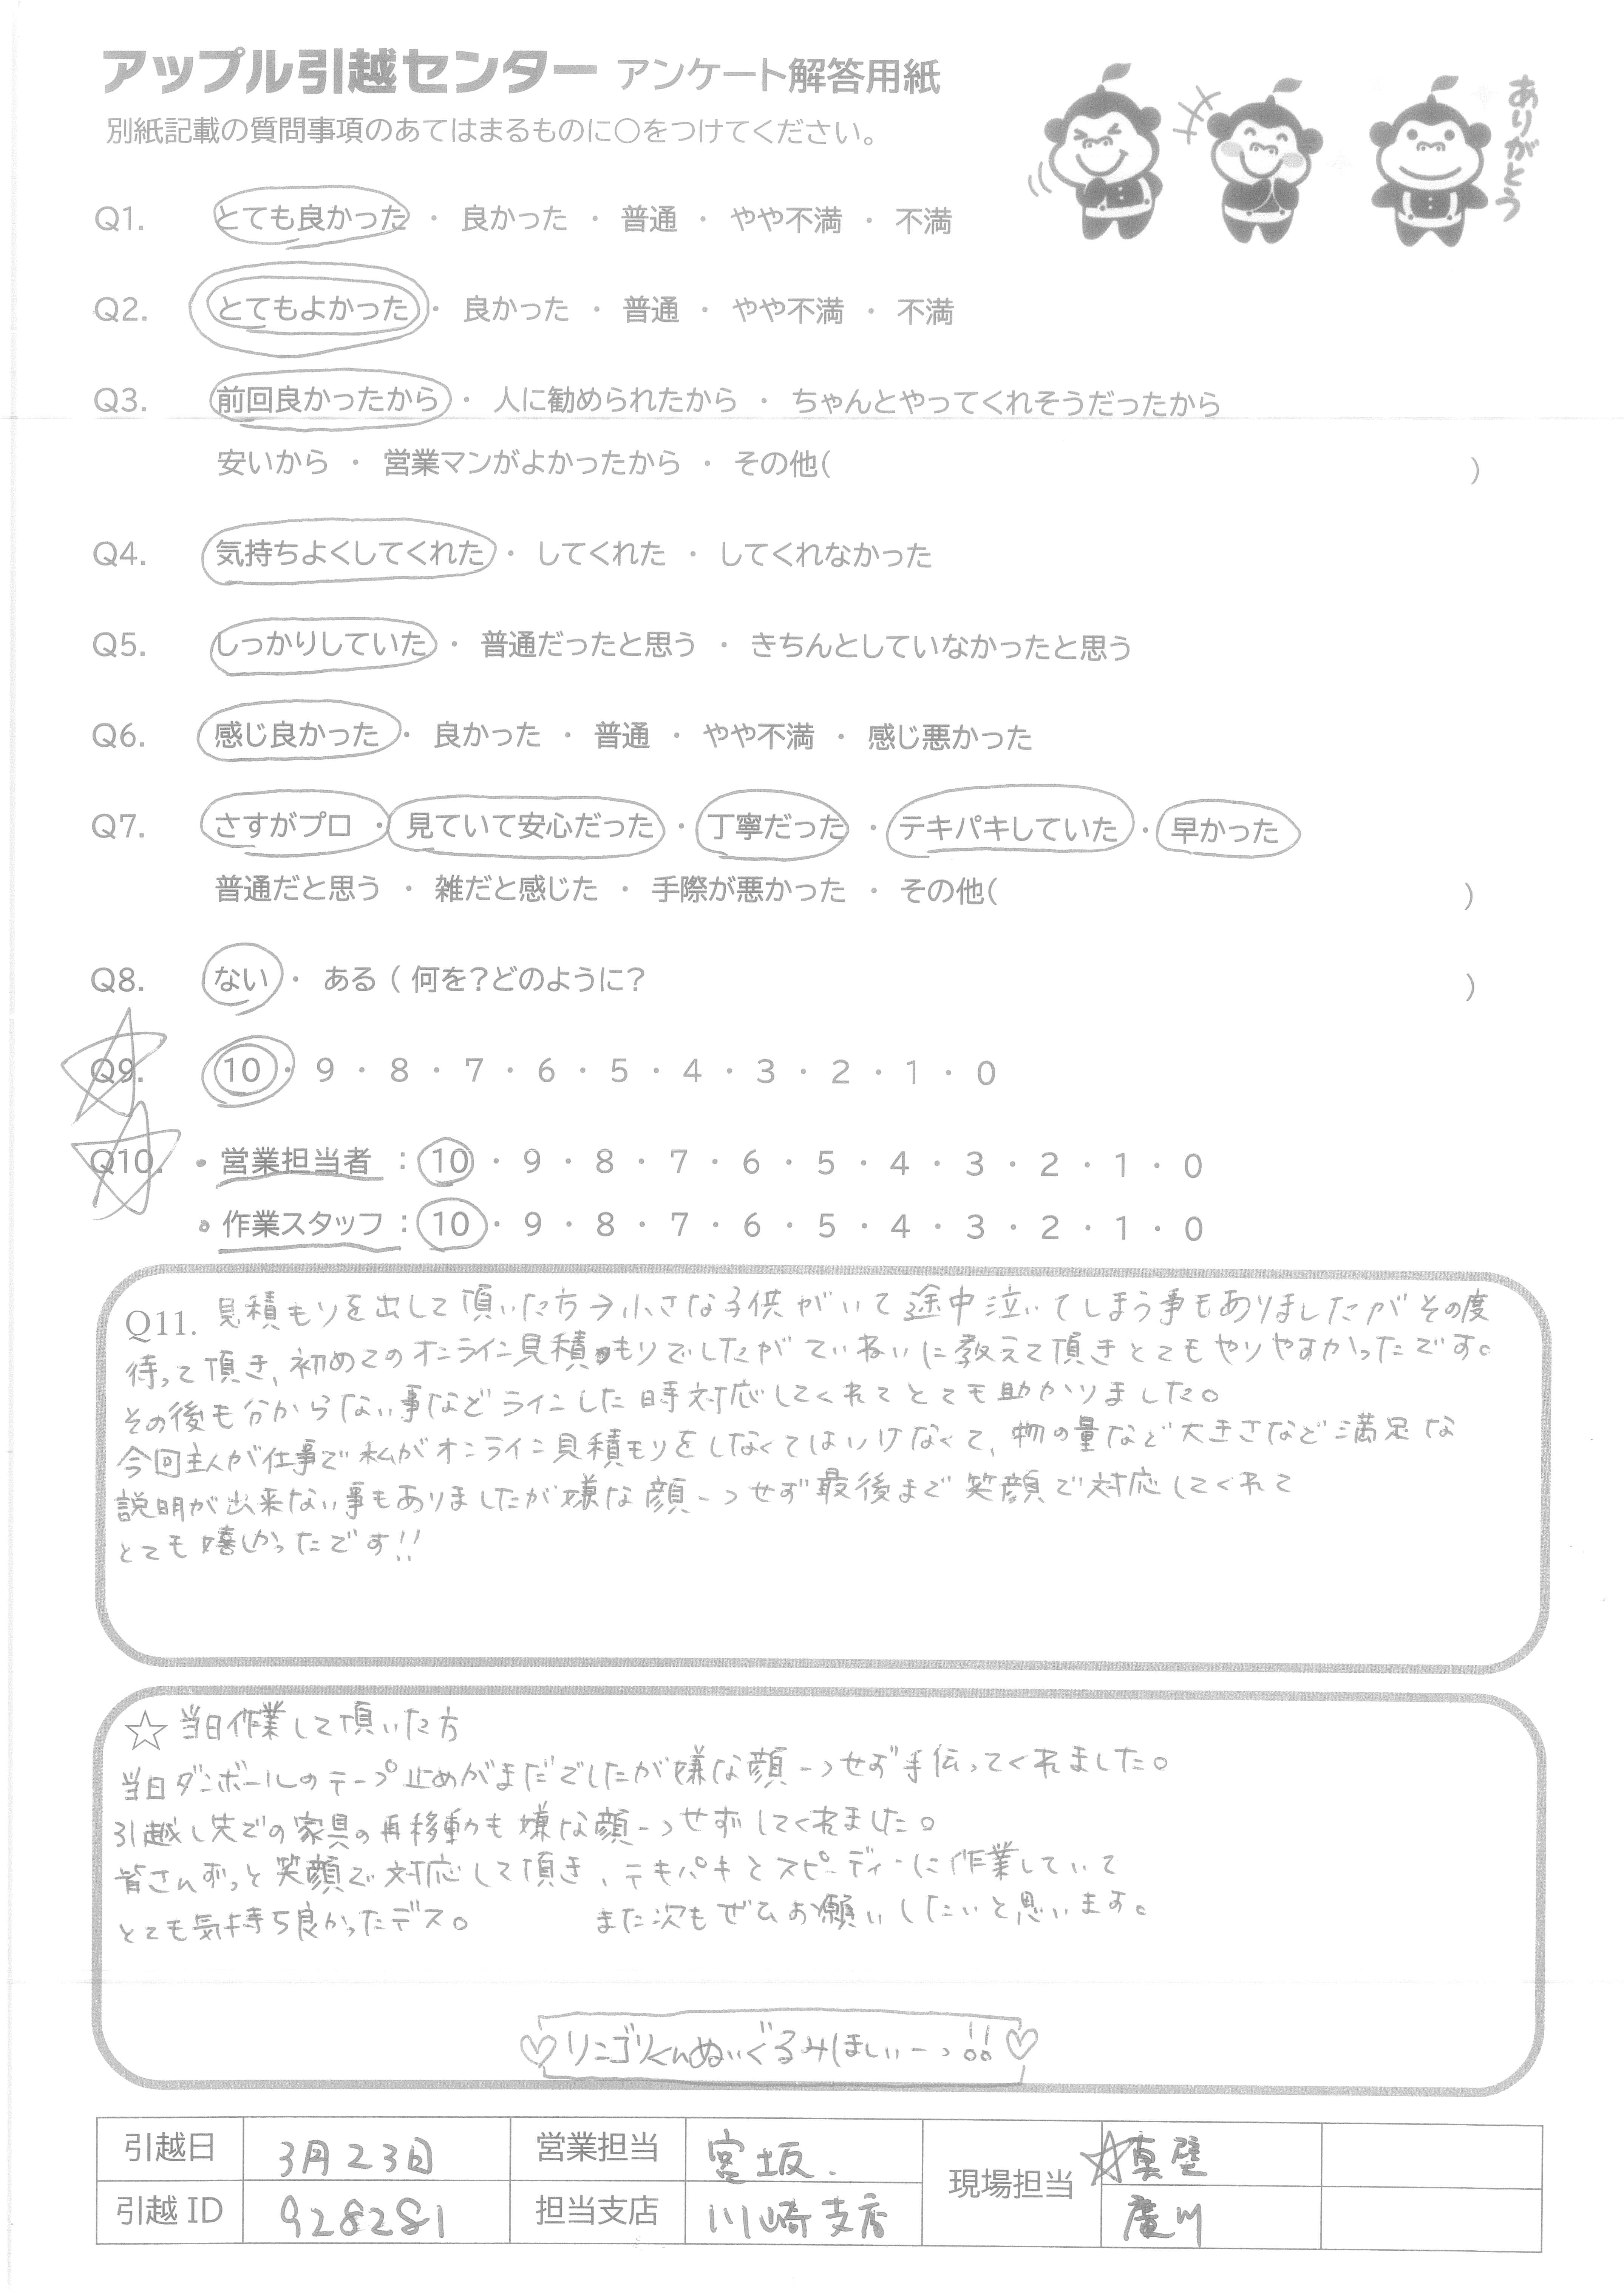 アップル引越センター アンケート解答用紙
別紙記載の質問事項のあてはまるものに○をつけてください。
ありがとう
Q1. とても良かった ・ 良かった ・ 普通 ・ やや不満 ・ 不満
Q2. とてもよかった ・ 良かった ・ 普通 ・ やや不満 ・ 不満
Q3. 前回良かったから ・ 人に勧められたから ・ ちゃんとやってくれそうだったから
安いから ・ 営業マンがよかったから ・ その他( )
Q4. 気持ちよくしてくれた ・ してくれた ・ してくれなかった
Q5. しっかりしていた ・ 普通だったと思う ・ きちんとしていなかったと思う
Q6. 感じ良かった ・ 良かった ・ 普通 ・ やや不満 ・ 感じ悪かった
Q7. さすがプロ ・ 見ていて安心だった ・ 丁寧だった ・ テキパキしていた ・ 早かった
普通だと思う ・ 雑だと感じた ・ 手際が悪かった ・ その他( )
Q8. ない ・ ある ( 何を？どのように？ )
Q9. 10 ・ 9 ・ 8 ・ 7 ・ 6 ・ 5 ・ 4 ・ 3 ・ 2 ・ 1 ・ 0
Q10. ・営業担当者 : 10 ・ 9 ・ 8 ・ 7 ・ 6 ・ 5 ・ 4 ・ 3 ・ 2 ・ 1 ・ 0
・作業スタッフ : 10 ・ 9 ・ 8 ・ 7 ・ 6 ・ 5 ・ 4 ・ 3 ・ 2 ・ 1 ・ 0
Q11. 見積もりを出して頂いた方→小さな子供がいて途中泣いてしまう事もありましたがその度
待って頂き、初めてのオンライン見積もりでしたがていねいに教えて頂きとてもやりやすかったです。
その後も分からない事などラインした時対応してくれてとても助かりました。
今回主人が仕事で私がオンライン見積もりをしなくてはいけなくて、物の量など大きさなど満足な
説明が出来ない事もありましたが嫌な顔一つせず最後まで笑顔で対応してくれて
とても嬉しかったです!!
☆当日作業して頂いた方
当日ダンボールのテープ止めがまだでしたが嫌な顔一つせず手伝ってくれました。
引越し先での家具の再移動も嫌な顔一つせずしてくれました。
皆さんずっと笑顔で対応して頂き、テキパキとスピーディーに作業していて
とても気持ち良かったデス。 また次もぜひお願いしたいと思います。
♡リンゴリくんぬいぐるみほしいーっ!!♡
引越日 3月23日 営業担当 宮坂. 現場担当 ☆真壁
引越 ID 928281 担当支店 川崎支店 廣川